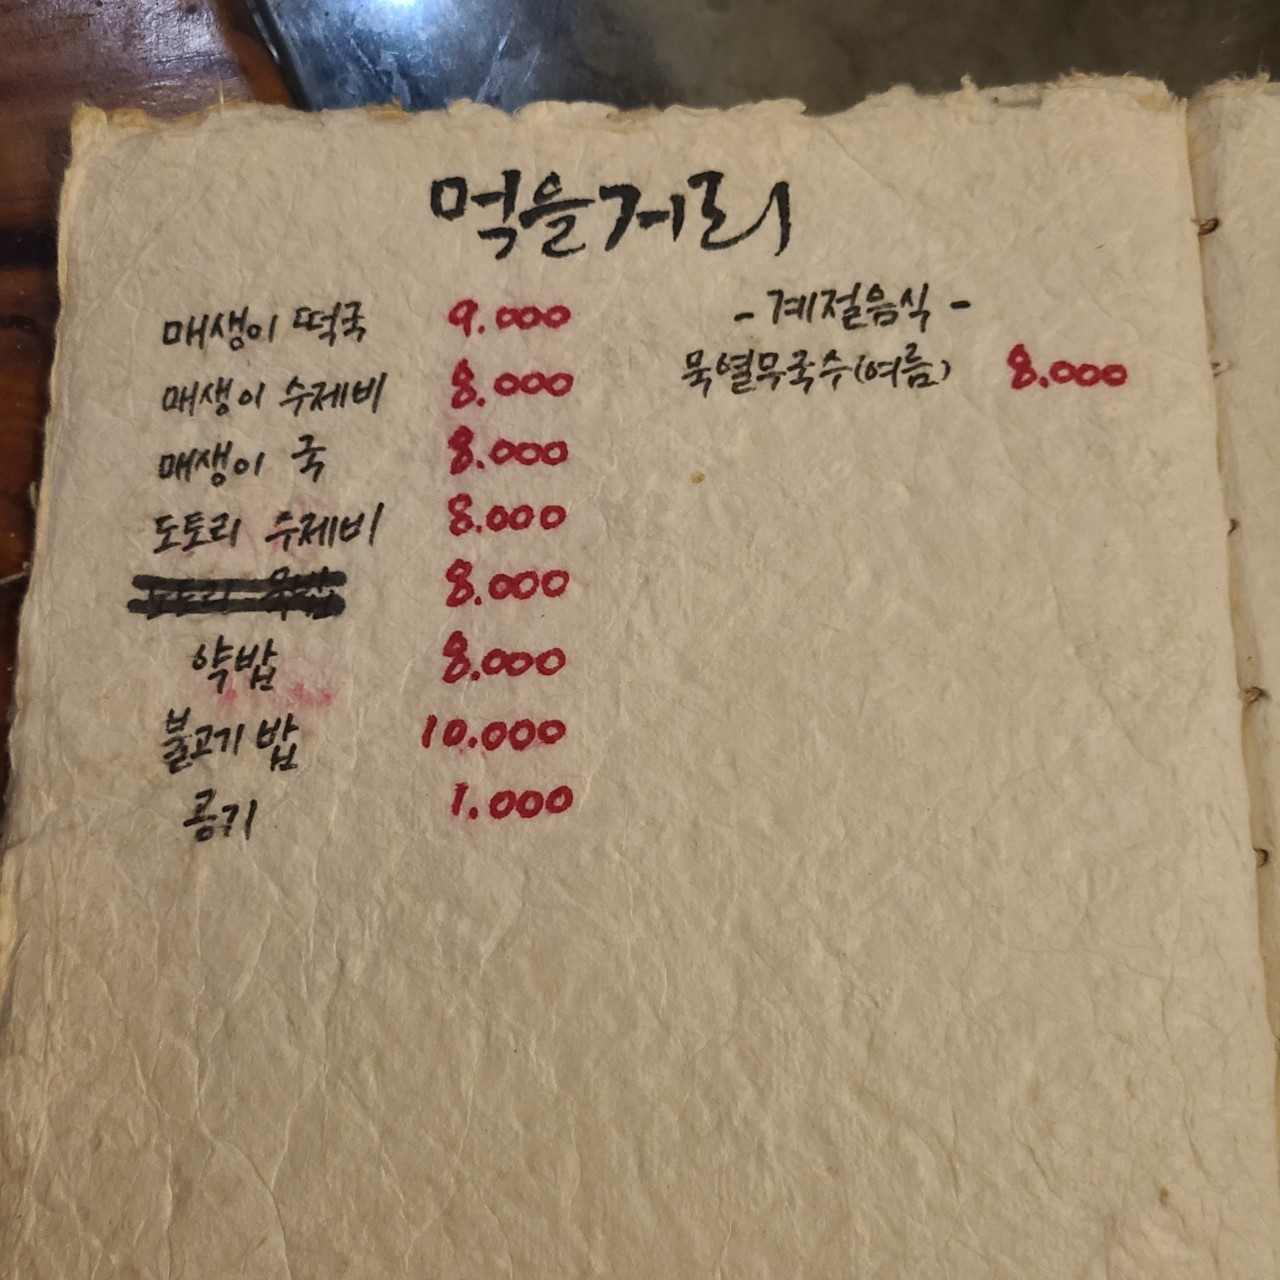 먹을거리
매생이 떡국 9.000
매생이 수제비 8.000
매생이 국 8.000
도토리 수제비 8.000
8.000
약밥 8.000
불고기 밥 10.000
공기 1.000
- 계절음식 -
묵열무국수(여름) 8.000